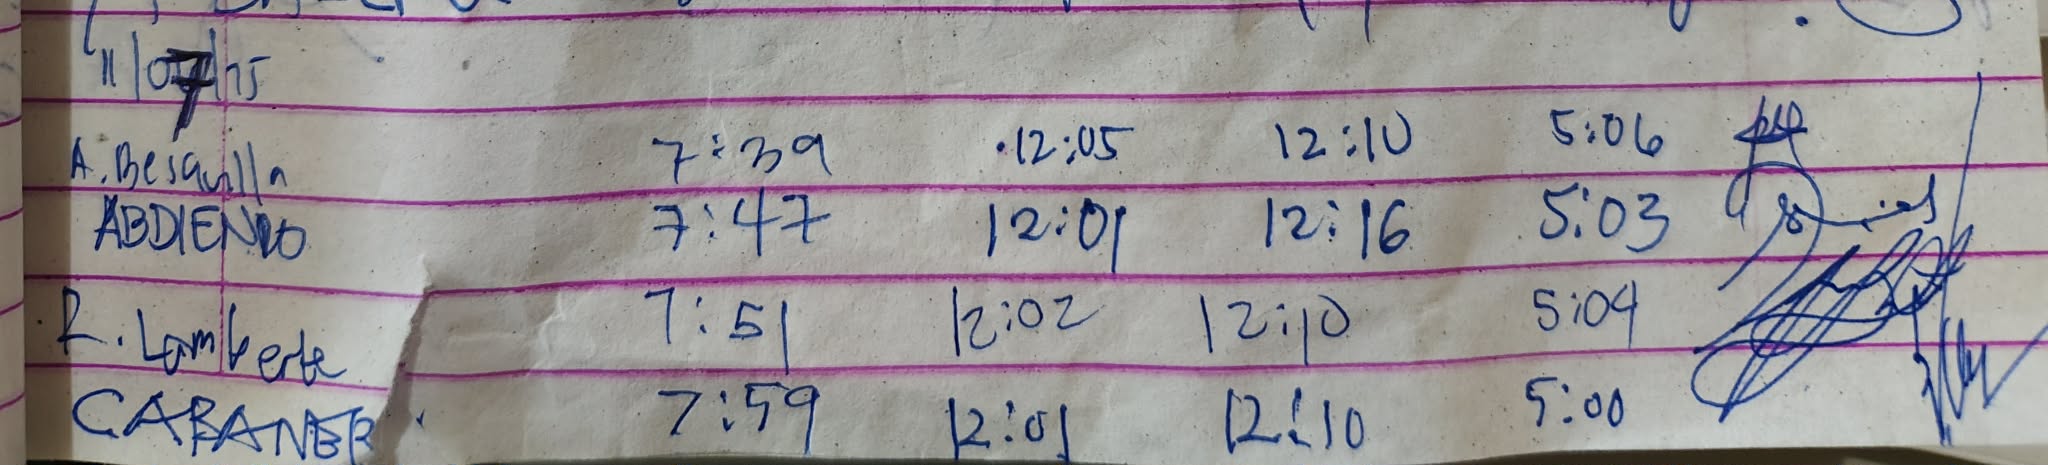 11/07/25
A. Besquilla 7:39 12:05 12:10 5:06
ABDIENDO 7:47 12:01 12:16 5:03
R. Lamberte 7:51 12:02 12:10 5:04
CABANER 7:59 12:01 12:10 5:00